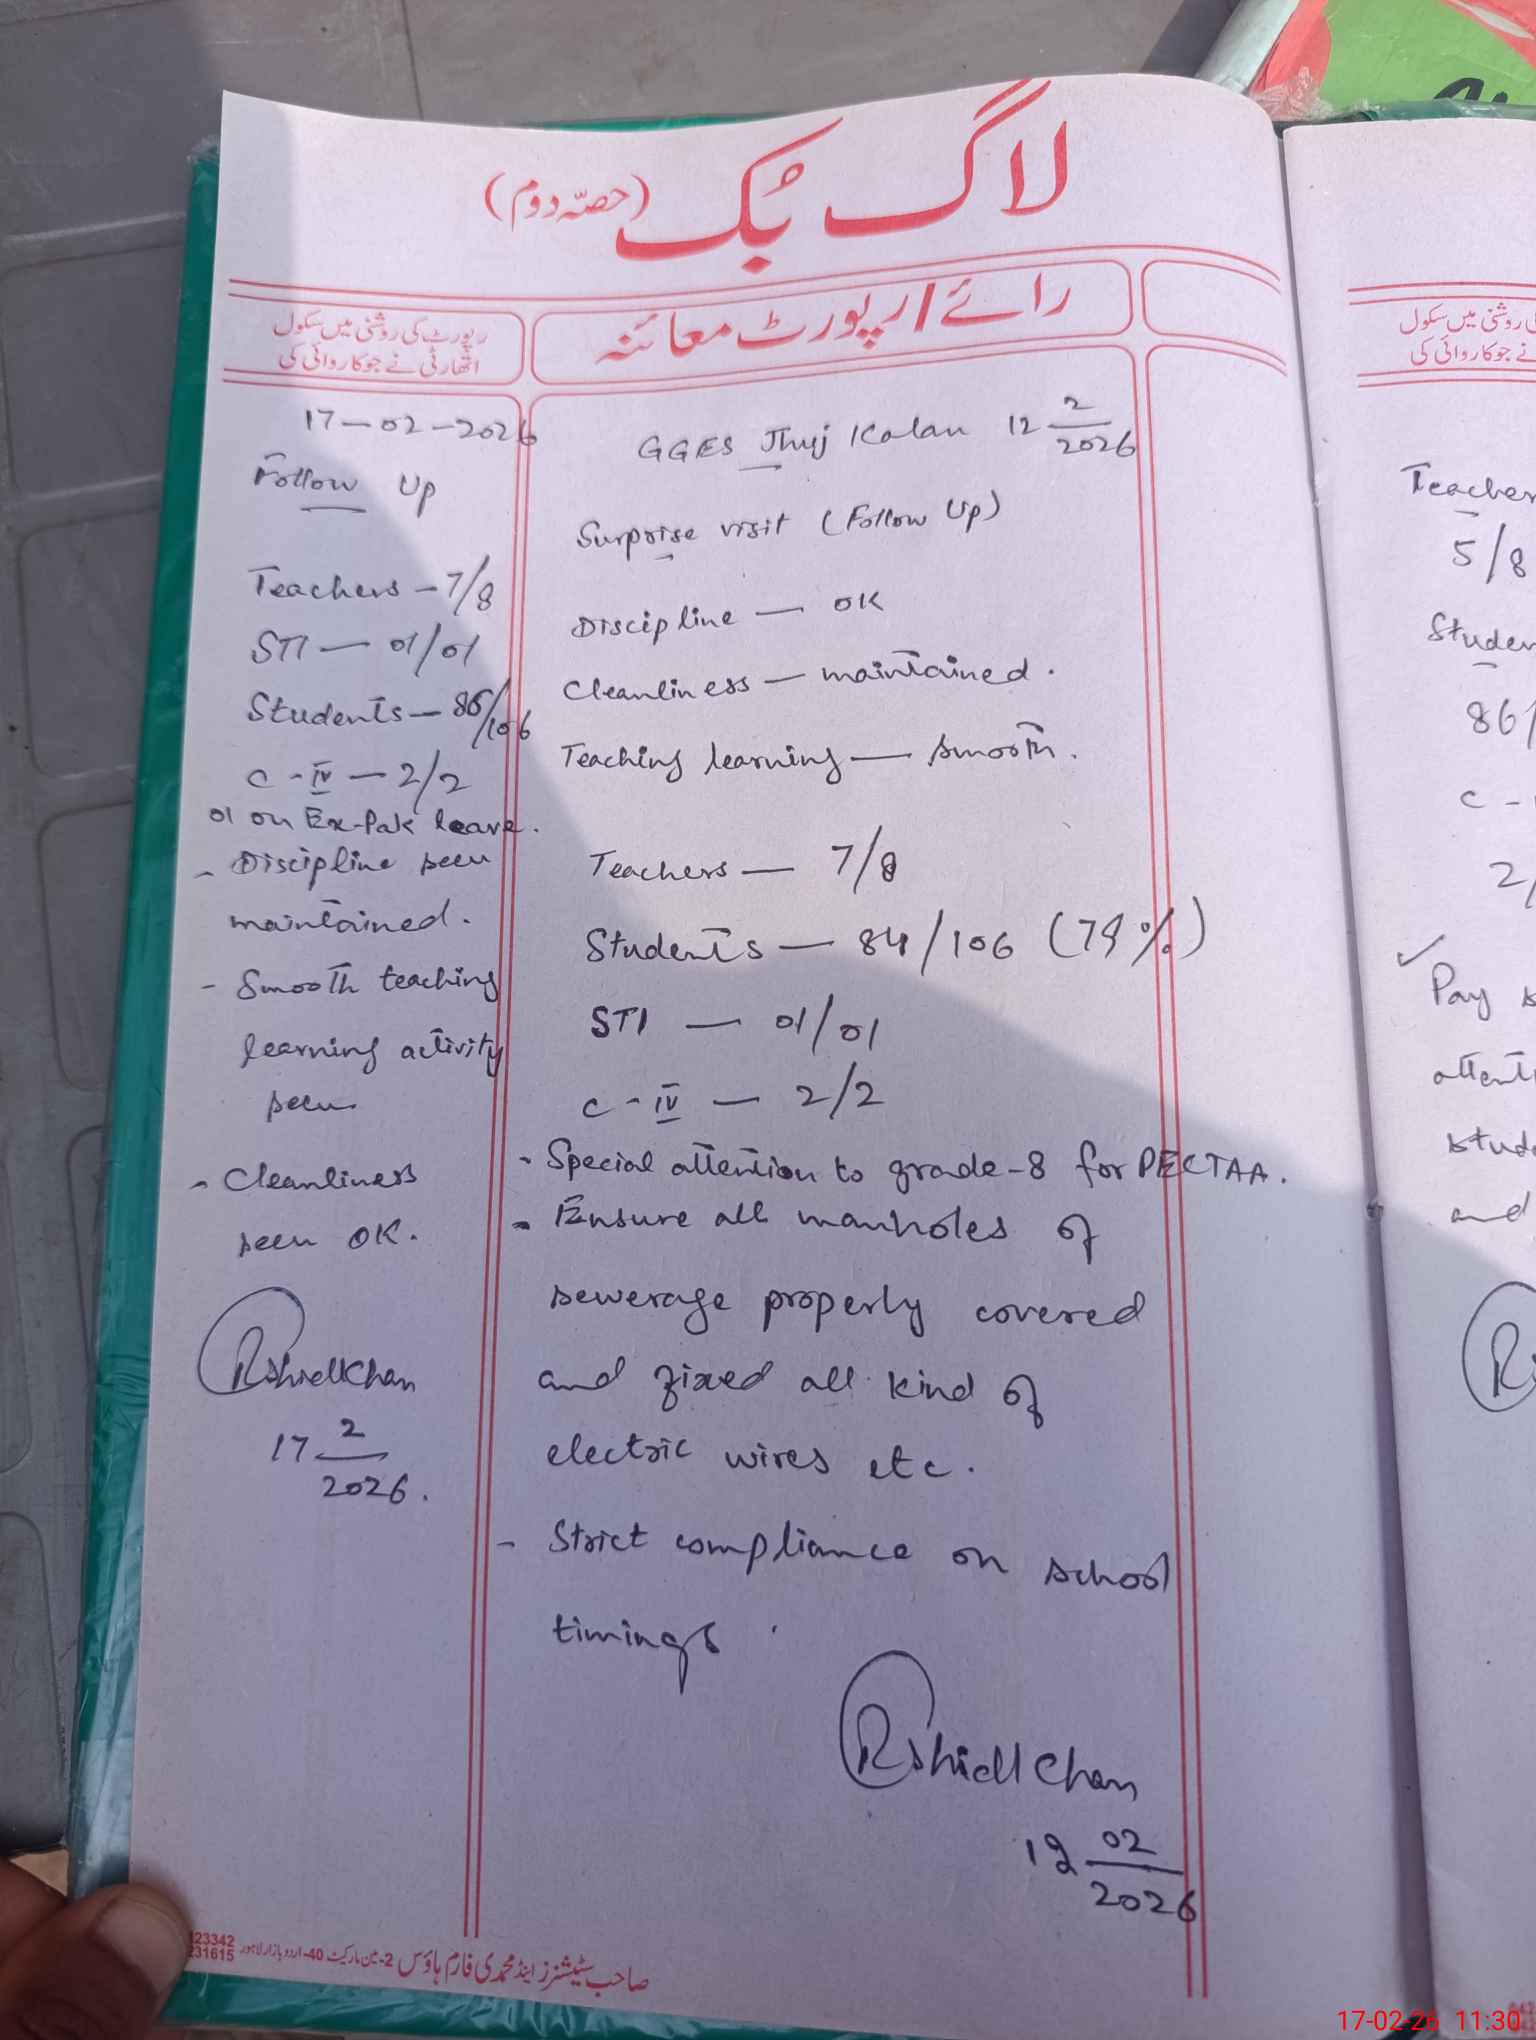 لاگ بُک (حصّہ دوم)
رائے / رپورٹ معائنہ
رپورٹ کی روشنی میں سکول
اتھارٹی نے جو کاروائی کی
17-02-2026
Follow Up
Teachers - 7/8
STI - 01/01
Students - 86/106
C-IV - 2/2
01 on Ex-Pak leave.
- Discipline seen
maintained.
- Smooth teaching
learning activity
seen
- Cleanliness
seen OK.
17 2/2026.
GGES Jhuj Kalan 12 2/2026
Surprise visit (Follow Up)
Discipline - OK
Cleanliness - maintained.
Teaching learning - smooth.
Teachers - 7/8
Students - 84/106 (79%)
STI - 01/01
C-IV - 2/2
- Special attention to grade-8 for PECTAA.
- Ensure all manholes of
sewerage properly covered
and fixed all kind of
electric wires etc.
- Strict compliance on school
timings.
12 02/2026
23342
231615
صاحب سٹیشنرز اینڈ محمدی فارم ہاؤس 2-مین مارکیٹ 40-اردو بازار لاہور
سکول
نے جو کاروائی کی
5/8
86/
C -
2/
✓ Pay
and
17-02-26 11:30